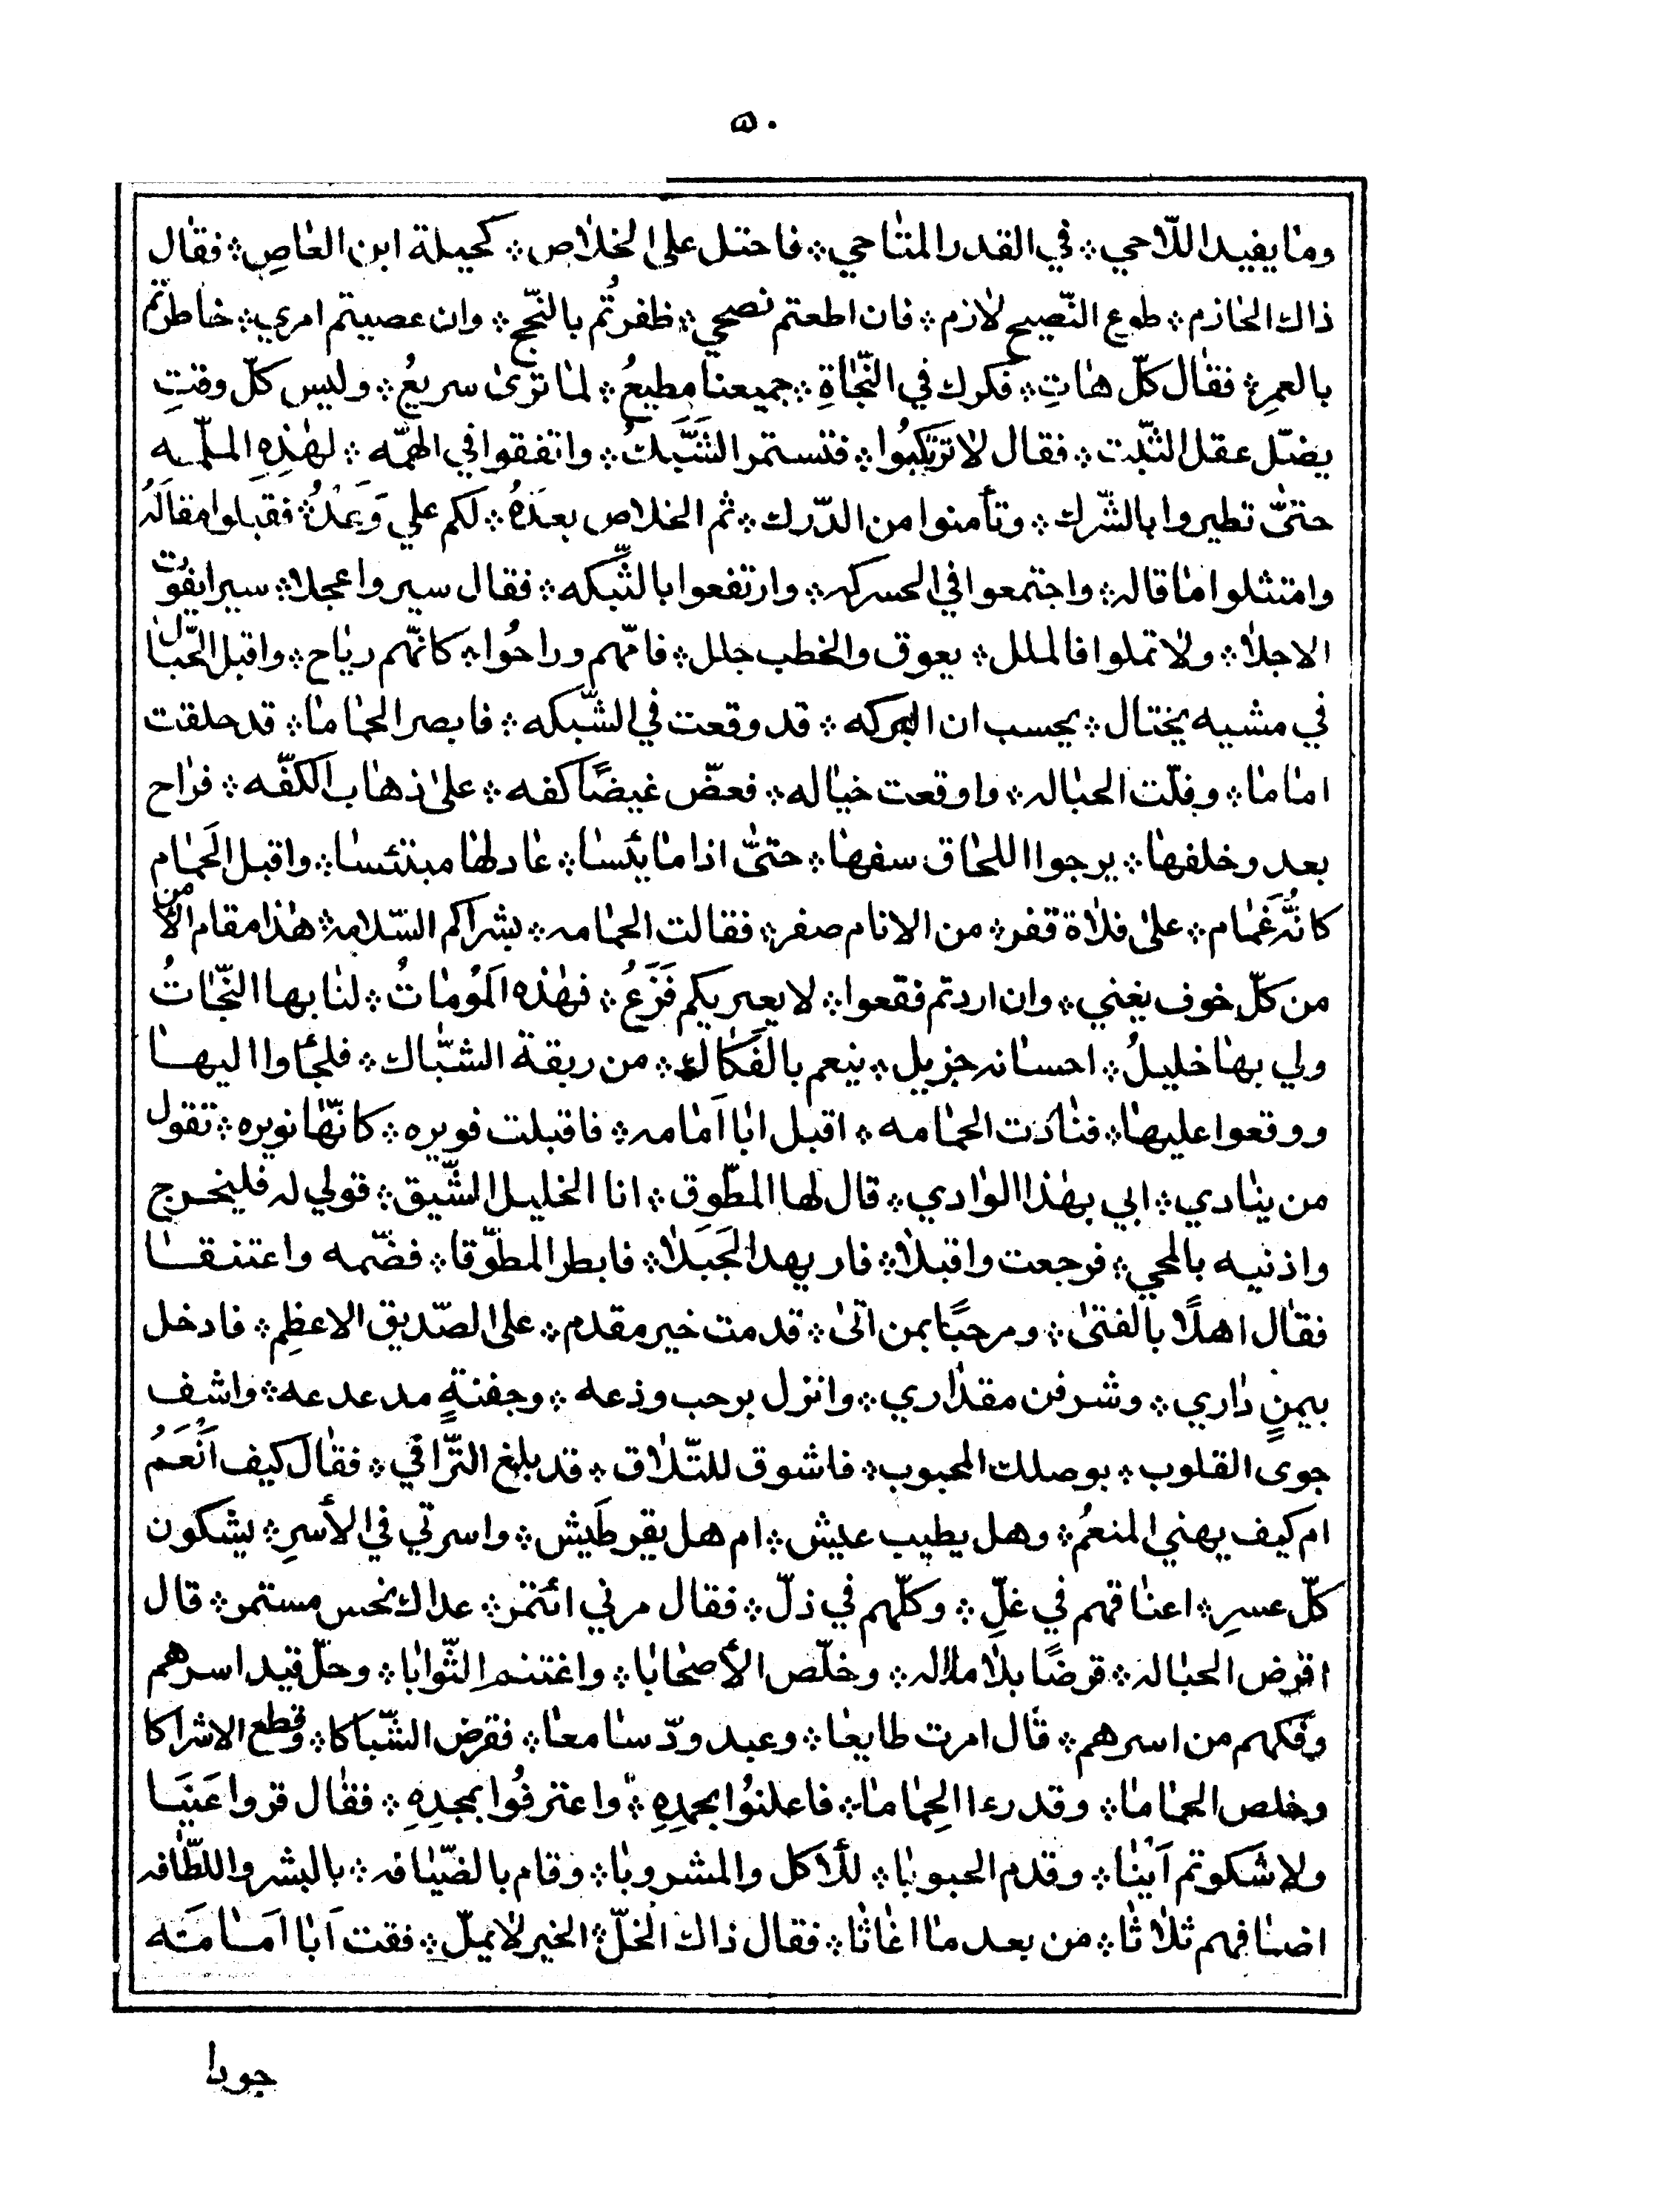 ٥٠
ومٰا يفيد اللّاحي ܀ في القدر المتٰاحي ܀ فاحتل على الخلاص ܀ كحيلة ابن العٰاصِ ܀ فقٰال
ذاك الحٰازم ܀ طوع النّصيح لازم ܀ فان اطعتم نصحي ܀ ظفرتُم بالنّجح ܀ وان عصيتم امري ܀ خاطرتم
بالعمرِ ܀ فقٰال كلّ هٰاتِ ܀ فكرك في النّجٰاةِ ܀ جميعنا مطيعُ ܀ لمٰا ترىٰ سريعُ ܀ وليس كلّ وقتِ
يضلّ عقل الثّبت ܀ فقال لا ترتكبُوا ܀ فتستمر الشَّبَكُ ܀ واتفقوا في الهمّه ܀ لهٰذِهِ الملمّه
حتىّٰ تطيروا بالشّرك ܀ وتأمنوا من الدّرك ܀ ثم الخلاص بعدَهُ ܀ لكم علي وَعْدُهُ ܀ فقبلوا مقالَهُ
وامتثلوا مٰا قاله ܀ واجتمعوا في الحسركه ܀ وارتفعوا بالشّبكه ܀ فقال سيروا عجلا ܀ سيرا يفُوت
الاجلاٰ ܀ ولاٰ تملوا فالملل ܀ يعوق والخطب جلل ܀ فامّهم وراحُوا ܀ كانّهم ريٰاح ܀ واقبل الحبّٰال
في مشيه يختال ܀ يحسب ان البركه ܀ قد وقعت في الشّبكه ܀ فابصر الحمٰامٰا ܀ قد حلقت
امٰامٰا ܀ وفلّت الحبٰاله ܀ واوقعت خيٰاله ܀ فعضّ غيضًا كفه ܀ علىٰ ذهٰاب الكفّه ܀ فرٰاح
بعد وخلفهٰا ܀ يرجوا اللحٰاق سفهٰا ܀ حتىّٰ اذا مٰا يئسٰا ܀ عٰاد لهٰا مبتئسٰا ܀ واقبل الحَمٰام
كانّه غَمٰام ܀ علىٰ فلاٰة قفر ܀ من الانام صفر ܀ فقالت الحمٰامه ܀ بشراكم السّلامه ܀ هٰذا مقام الأمن
من كلّ خوف يغني ܀ وان اردتم فقعوا ܀ لا يعريكم فَزَعُ ܀ فهٰذه المَوُمٰاتُ ܀ لنٰا بها النّجٰاتُ
ولي بهٰا خليلُ ܀ احسٰانه جزيل ܀ ينعم بالفَكٰاك ܀ من ربقة الشبّاك ܀ فلجٰأوا اليهٰا
ووقعوا عليهٰا ܀ فنٰادَت الحمٰامه ܀ اقبل ابٰا اَمٰامه ܀ فاقبلت فويره ܀ كانّهٰا نويره ܀ تقول
من ينٰادي ܀ ابي بهٰذا الوٰادي ܀ قال لها المطّوق ܀ انا الخليل الشّيق ܀ قولي له فليخرج
واذنيه بالمجي ܀ فرجعت واقبلاٰ ܀ فار يهد الجَبَلاٰ ܀ فابطر المطوّقا ܀ فضّمه واعتنقٰا
فقٰال اهلًا بالفتىٰ ܀ ومرحبًا بمن اتىٰ ܀ قدمت خير مقدم ܀ على الصّديق الاعظمِ ܀ فادخل
بيمنٍ دٰاري ܀ وشرفن مقدٰاري ܀ وانزل برحب وذعه ܀ وجفنةٍ مدعدعه ܀ واشف
جوى القلوب ܀ بوصلك المحبوب ܀ فاشوق للتّلاٰق ܀ قد بلغ التّراقي ܀ فقٰال كيف اَنْعَمُ
ام كيف يهني المنعمُ ܀ وهل يطيب عيش ܀ ام هل يقر طَيش ܀ واسرتي في الأسرِ ܀ يشكون
كلّ عسرِ ܀ اعنٰاقهم في غلِّ ܀ وكلّهم في ذلّ ܀ فقال مرني ائتمر ܀ عداك نحس مستمر ܀ قال
اقرض الحبٰاله ܀ قرضًا بلاٰ ملاله ܀ وخلّص الأصحٰابٰا ܀ واغتنم الثّوابٰا ܀ وحلّ قيد اسرهم
وفكهم من اسرهم ܀ قٰال امرت طايعٰا ܀ وعبد ودّ سٰامعٰا ܀ فقرض الشّباكا ܀ وقطع الاشراكا
وخلص الحمٰامٰا ܀ وقد رءا الحِمٰامٰا ܀ فاعلنوُا بحمدِهِ ܀ واعترفُوا بمجدِهِ ܀ فقٰال قروا عَيْنَا
ولا شكوتم اَيْنٰا ܀ وقدم الحبوبٰا ܀ للأكل والمشروبٰا ܀ وقام بالضّيٰافه ܀ بالبشر واللطّافه
اضٰافهم ثلاٰثٰا ܀ من بعد مٰا اغٰاثٰا ܀ فقال ذاك الخلّ ܀ الخير لاٰ يملّ ܀ فقت اَبٰا اَمٰامَته
جودا